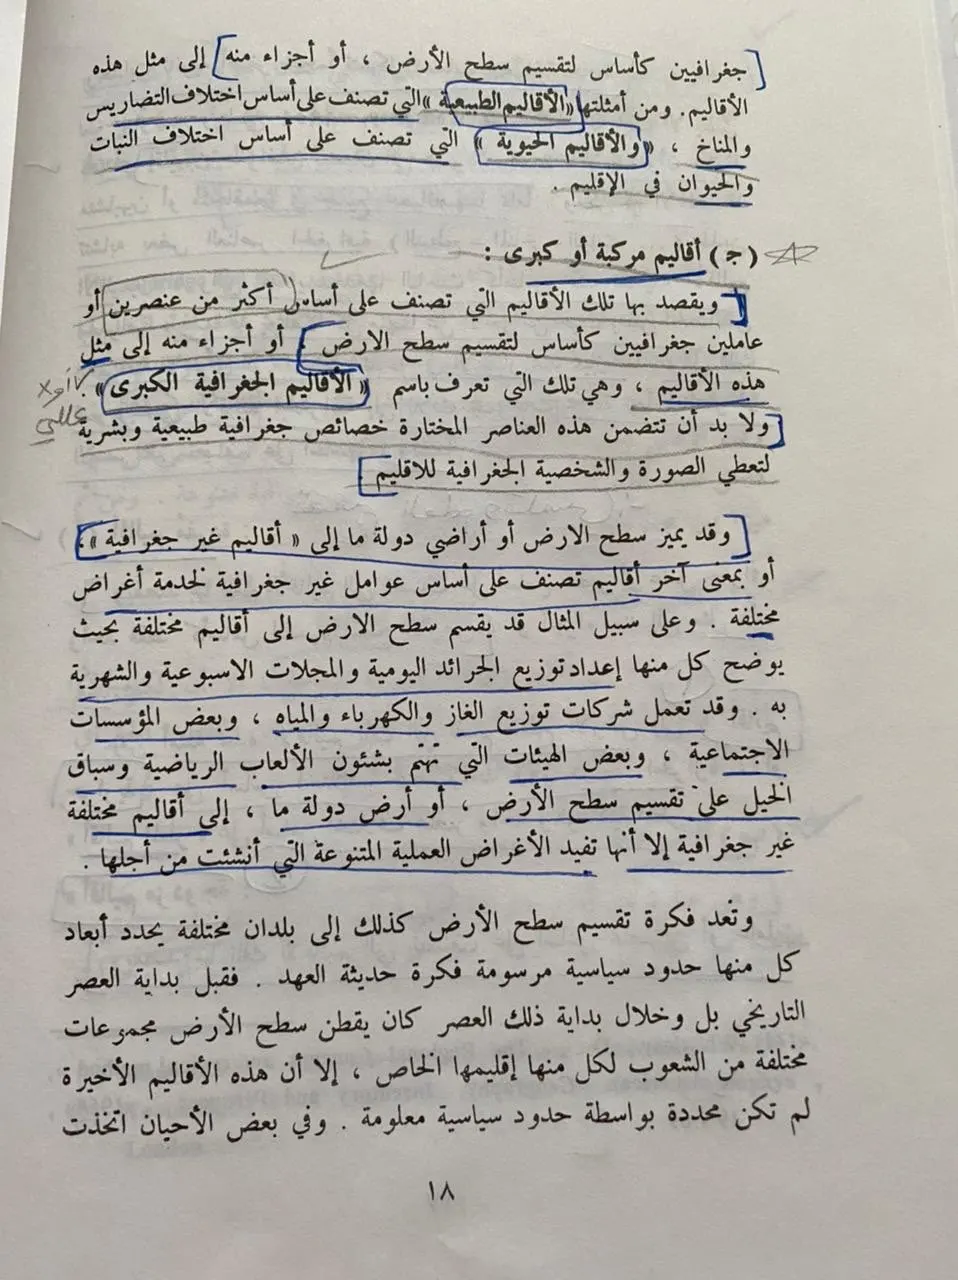 جغرافيين كأساس لتقسيم سطح الأرض ، أو أجزاء منه إلى مثل هذه
الأقاليم. ومن أمثلتها «الأقاليم الطبيعية» التي تصنف على أساس اختلاف التضاريس
والمناخ ، «والأقاليم الحيوية» التي تصنف على أساس اختلاف النبات
والحيوان في الإقليم .
(ج) أقاليم مركبة أو كبرى :
ويقصد بها تلك الأقاليم التي تصنف على أساس أكثر من عنصرين أو
عاملين جغرافيين كأساس لتقسيم سطح الارض ، أو أجزاء منه إلى مثل
هذه الأقاليم ، وهي تلك التي تعرف باسم «الأقاليم الجغرافية الكبرى»
ولا بد أن تتضمن هذه العناصر المختارة خصائص جغرافية طبيعية وبشرية
لتعطي الصورة والشخصية الجغرافية للاقليم
وقد يميز سطح الارض أو أراضي دولة ما إلى « أقاليم غير جغرافية » ،
أو بمعنى آخر أقاليم تصنف على أساس عوامل غير جغرافية لخدمة أغراض
مختلفة . وعلى سبيل المثال قد يقسم سطح الارض إلى أقاليم مختلفة بحيث
يوضح كل منها إعداد توزيع الجرائد اليومية والمجلات الاسبوعية والشهرية
به . وقد تعمل شركات توزيع الغاز والكهرباء والمياه ، وبعض المؤسسات
الاجتماعية ، وبعض الهيئات التي تهتم بشئون الألعاب الرياضية وسباق
الخيل على تقسيم سطح الأرض ، أو أرض دولة ما ، إلى أقاليم مختلفة
غير جغرافية إلا أنها تفيد الأغراض العملية المتنوعة التي أنشئت من أجلها .
وتعد فكرة تقسيم سطح الأرض كذلك إلى بلدان مختلفة يحدد أبعاد
كل منها حدود سياسية مرسومة فكرة حديثة العهد . فقبل بداية العصر
التاريخي بل وخلال بداية ذلك العصر كان يقطن سطح الأرض مجموعات
مختلفة من الشعوب لكل منها إقليمها الخاص ، إلا أن هذه الأقاليم الأخيرة
لم تكن محددة بواسطة حدود سياسية معلومة . وفي بعض الأحيان اتخذت
١٨